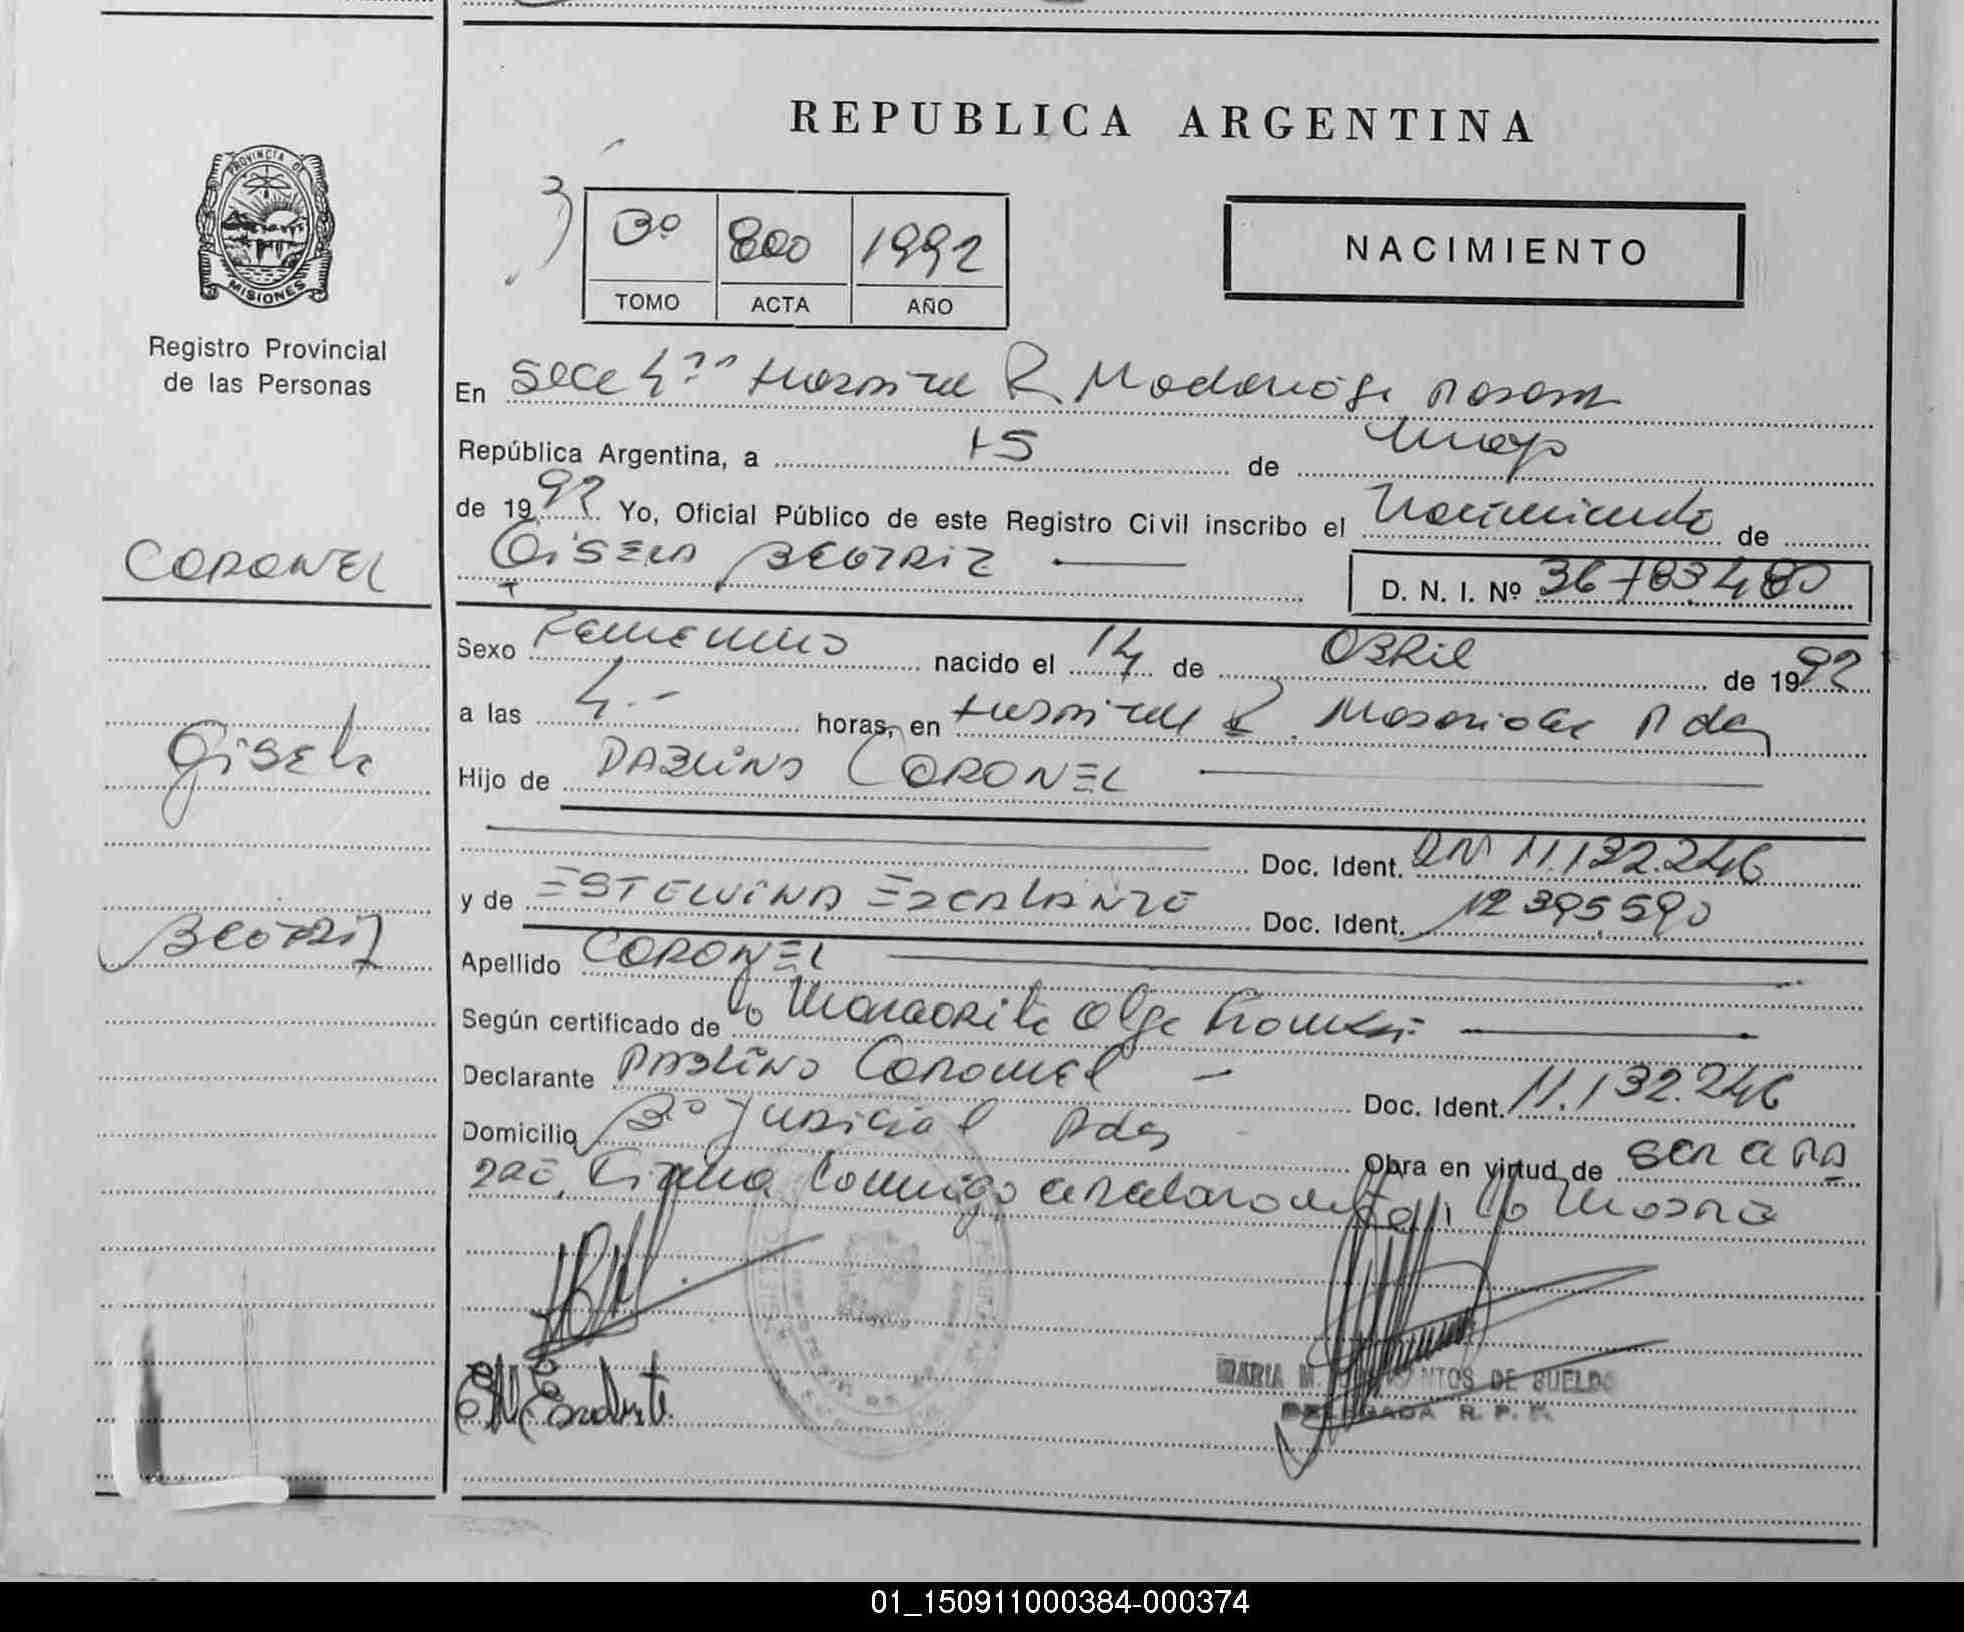 REPUBLICA ARGENTINA
PROVINCIA DE
MISIONES
Registro Provincial
de las Personas
3º 800 1992
TOMO ACTA AÑO
NACIMIENTO
En Secc 4ta Hospital R Madariaga Posadas
República Argentina, a 15 de Mayo
de 1992 Yo, Oficial Público de este Registro Civil inscribo el Nacimiento de
CORONEL
GISELA BEATRIZ
D. N. I. Nº 36783480
Sexo Femenino nacido el 14 de ABRIL de 1992
a las 4.- horas, en Hospital R. Madariaga Pdas
Gisela
Hijo de PABLINO CORONEL
Doc. Ident. DNI 11.132.246
y de ESTELVINA ESCALANTE Doc. Ident. 12395590
BEATRIZ
Apellido CORONEL
Según certificado de Margarita Olga
Declarante PABLINO CORONEL - Doc. Ident. 11.132.246
Domicilio Bº Judicial Pdas
Obra en virtud de ser el PA
DRE, Firma Conmigo el declarante y la Madre
MARIA M. NTOS DE SUELDO
DELEGADA R. P. P.
01_150911000384-000374